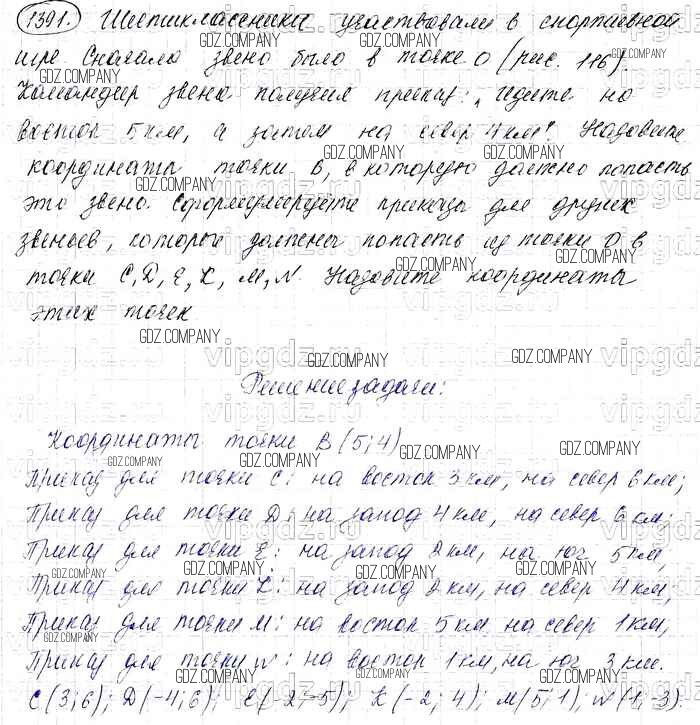 1391. Шестиклассники участвовали в спортивной
игре. Сначала звено было в точке O (рис. 116).
Командир звена получил приказ: „Идите на
восток 5 км, а затем на север 4 км". Назовите
координаты точки B, в которую должно попасть
это звено. Сформулируйте приказы для других
звеньев, которые должны попасть из точки O в
точки C, D, E, K, M, N. Назовите координаты
этих точек
Решение задачи:
Координаты точки B (5; 4)
Приказ для точки C: на восток 3 км, на север 6 км;
Приказ для точки D: на запад 4 км, на север 6 км;
Приказ для точки E: на запад 2 км, на юг 5 км,
Приказ для точки K: на запад 2 км, на север 4 км,
Приказ для точки M: на восток 5 км на север 1 км,
Приказ для точки N: на восток 1 км, на юг 3 км.
C (3; 6); D (-4; 6); E (-2 -5); K (-2; 4); M (5; 1); N (1; -3).
GDZ.COMPANY
vipgdz.ru